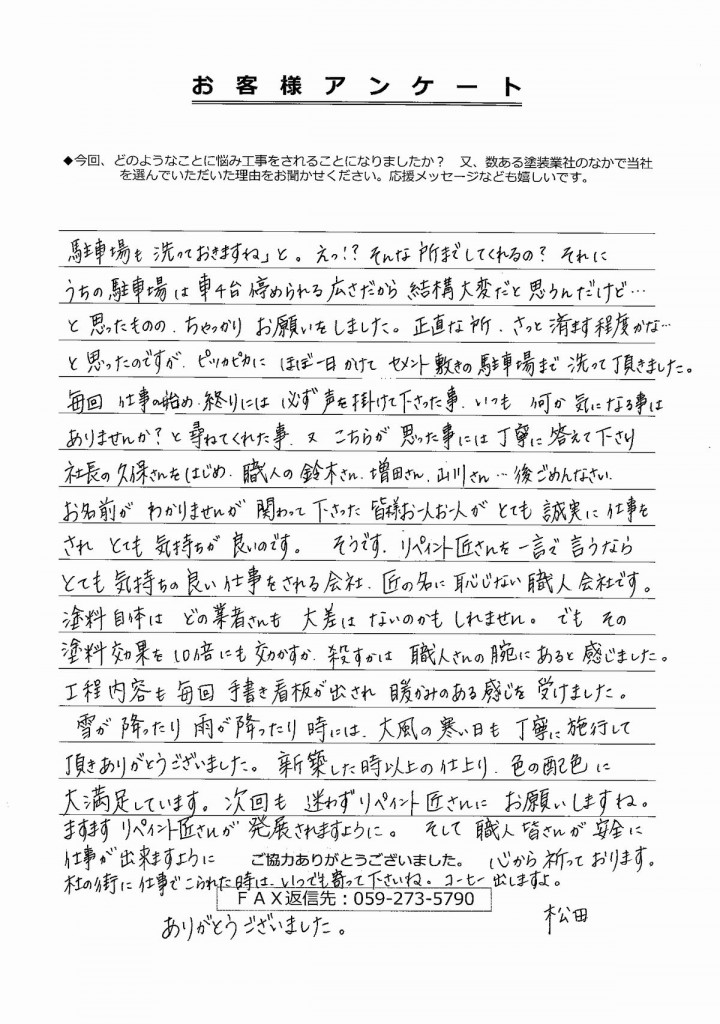 お客様アンケート
◆今回、どのようなことに悩み工事をされることになりましたか？　又、数ある塗装業社のなかで当社
を選んでいただいた理由をお聞かせください。応援メッセージなども嬉しいです。
駐車場も洗っておきますね」と。えっ!?そんな所までしてくれるの？それに
うちの駐車場は車4台停められる広さだから結構大変だと思うんだけど…
と思ったものの、ちゃっかりお願いをしました。正直な所、さっと済ます程度かな…
と思ったのですが、ピッカピカにほぼ一日かけてセメント敷きの駐車場まで洗って頂きました。
毎回仕事の始め、終りには必ず声を掛けて下さった事、いつも何か気になる事は
ありませんか？と尋ねてくれた事、又こちらが思った事には丁寧に答えて下さり
社長の久保さんをはじめ、職人の鈴木さん、増田さん、山川さん…後ごめんなさい、
お名前がわかりませんが関わって下さった皆様お一人お一人がとても誠実に仕事を
されとても気持ちが良いのです。そうです、リペイント匠さんを一言で言うなら
とても気持ちの良い仕事をされる会社、匠の名に恥じない職人会社です。
塗料自体はどの業者さんも大差はないのかもしれません。でもその
塗料効果を10倍にも効かすか、殺すかは職人さんの腕にあると感じました。
工程内容も毎回手書き看板が出され暖かみのある感じを受けました。
雪が降ったり雨が降ったり時には、大風の寒い日も丁寧に施行して
頂きありがとうございました。新築した時以上の仕上り、色の配色に
大満足しています。次回も迷わずリペイント匠さんにお願いしますね。
ますますリペイント匠さんが発展されますように。そして職人皆さんが安全に
仕事が出来ますように　ご協力ありがとうございました。　心から祈っております。
杜の街に仕事でこられた時は、いつでも寄って下さいね。コーヒー出しますよ。
ＦＡＸ返信先：059-273-5790
ありがとうございました。　松田